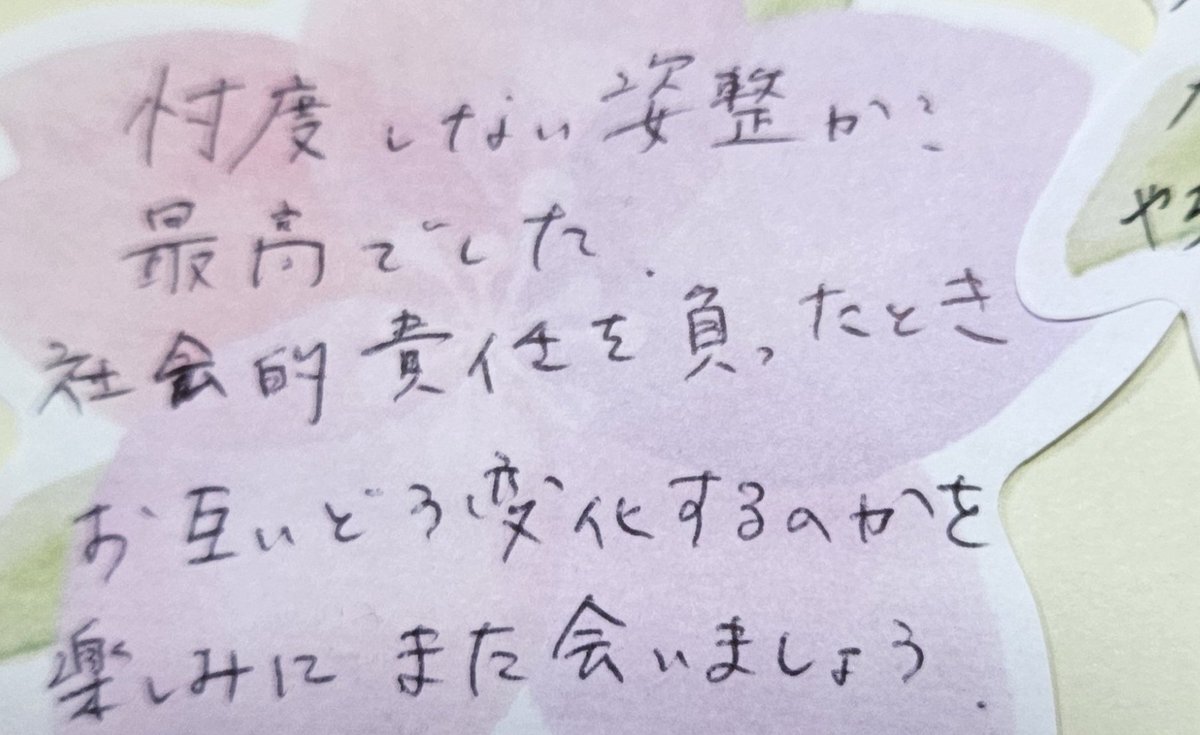 忖度しない姿整が
最高でした.
社会的責任を負ったとき
お互いどう変化するのかを
楽しみにまた会いましょう.
や